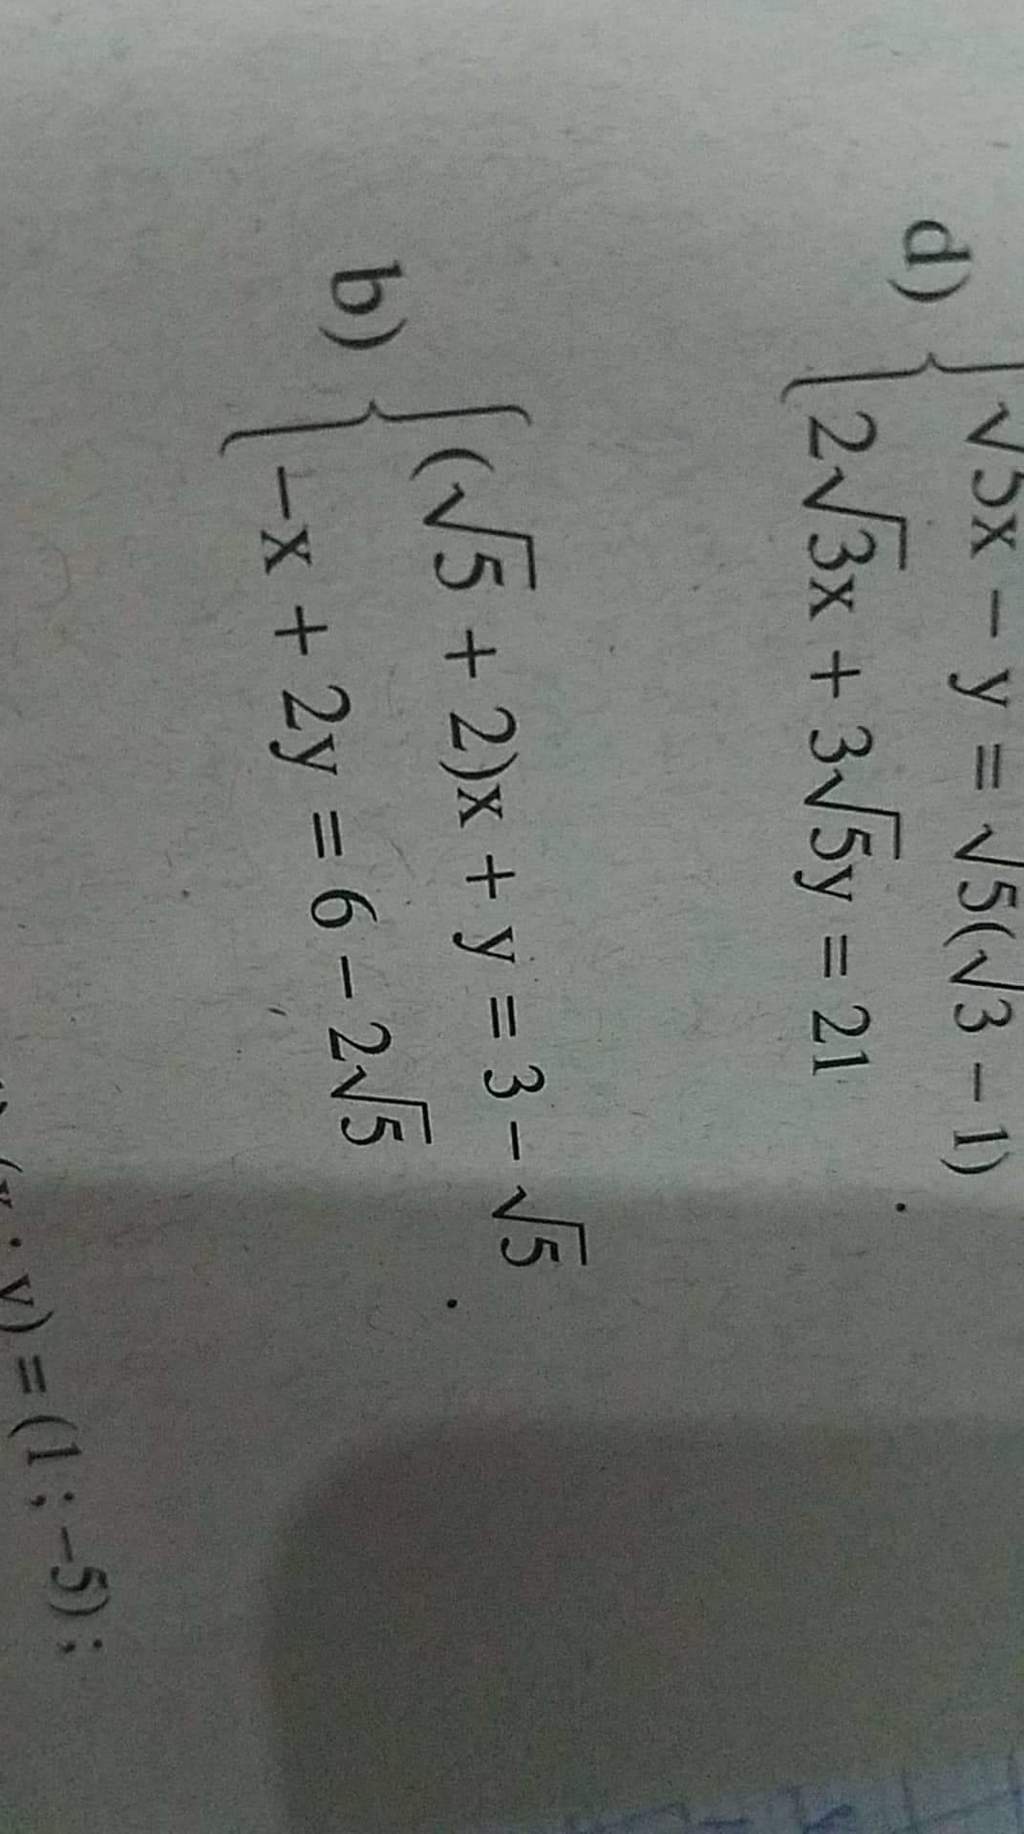 d) { √5x − y = √5(√3 − 1)
2√3x + 3√5y = 21 .
b) { (√5 + 2)x + y = 3 − √5
−x + 2y = 6 − 2√5 .
y) = (1 ; −5) ;